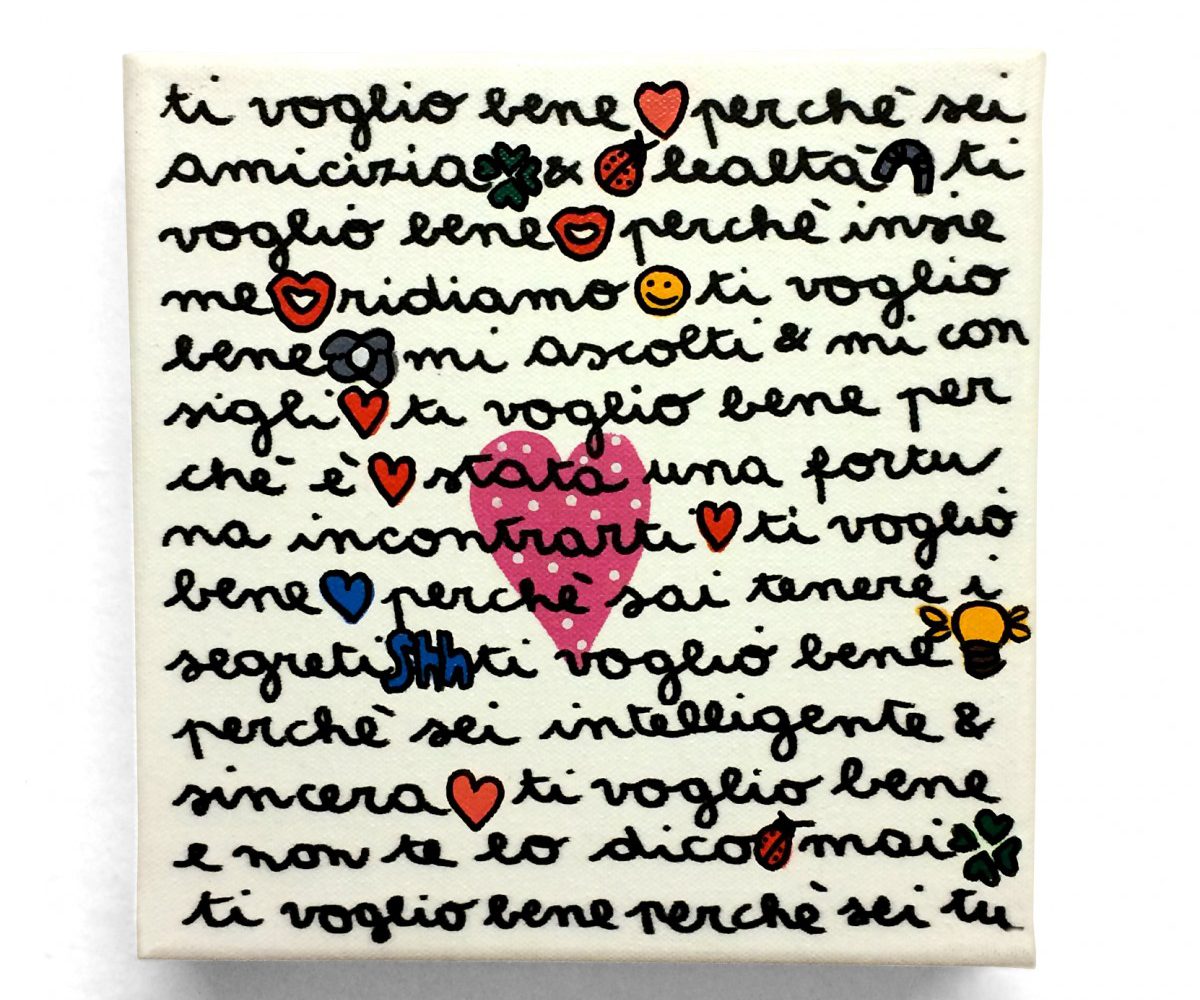 ti voglio bene perchè sei
amicizia & lealtà ti
voglio bene perchè insie
me ridiamo ti voglio
bene mi ascolti & mi con
sigli ti voglio bene per
chè è stata una fortu
na incontrarti ti voglio
bene perchè sai tenere i
segreti Shh ti voglio bene
perchè sei intelligente &
sincera ti voglio bene
e non te lo dico mai
ti voglio bene perchè sei tu